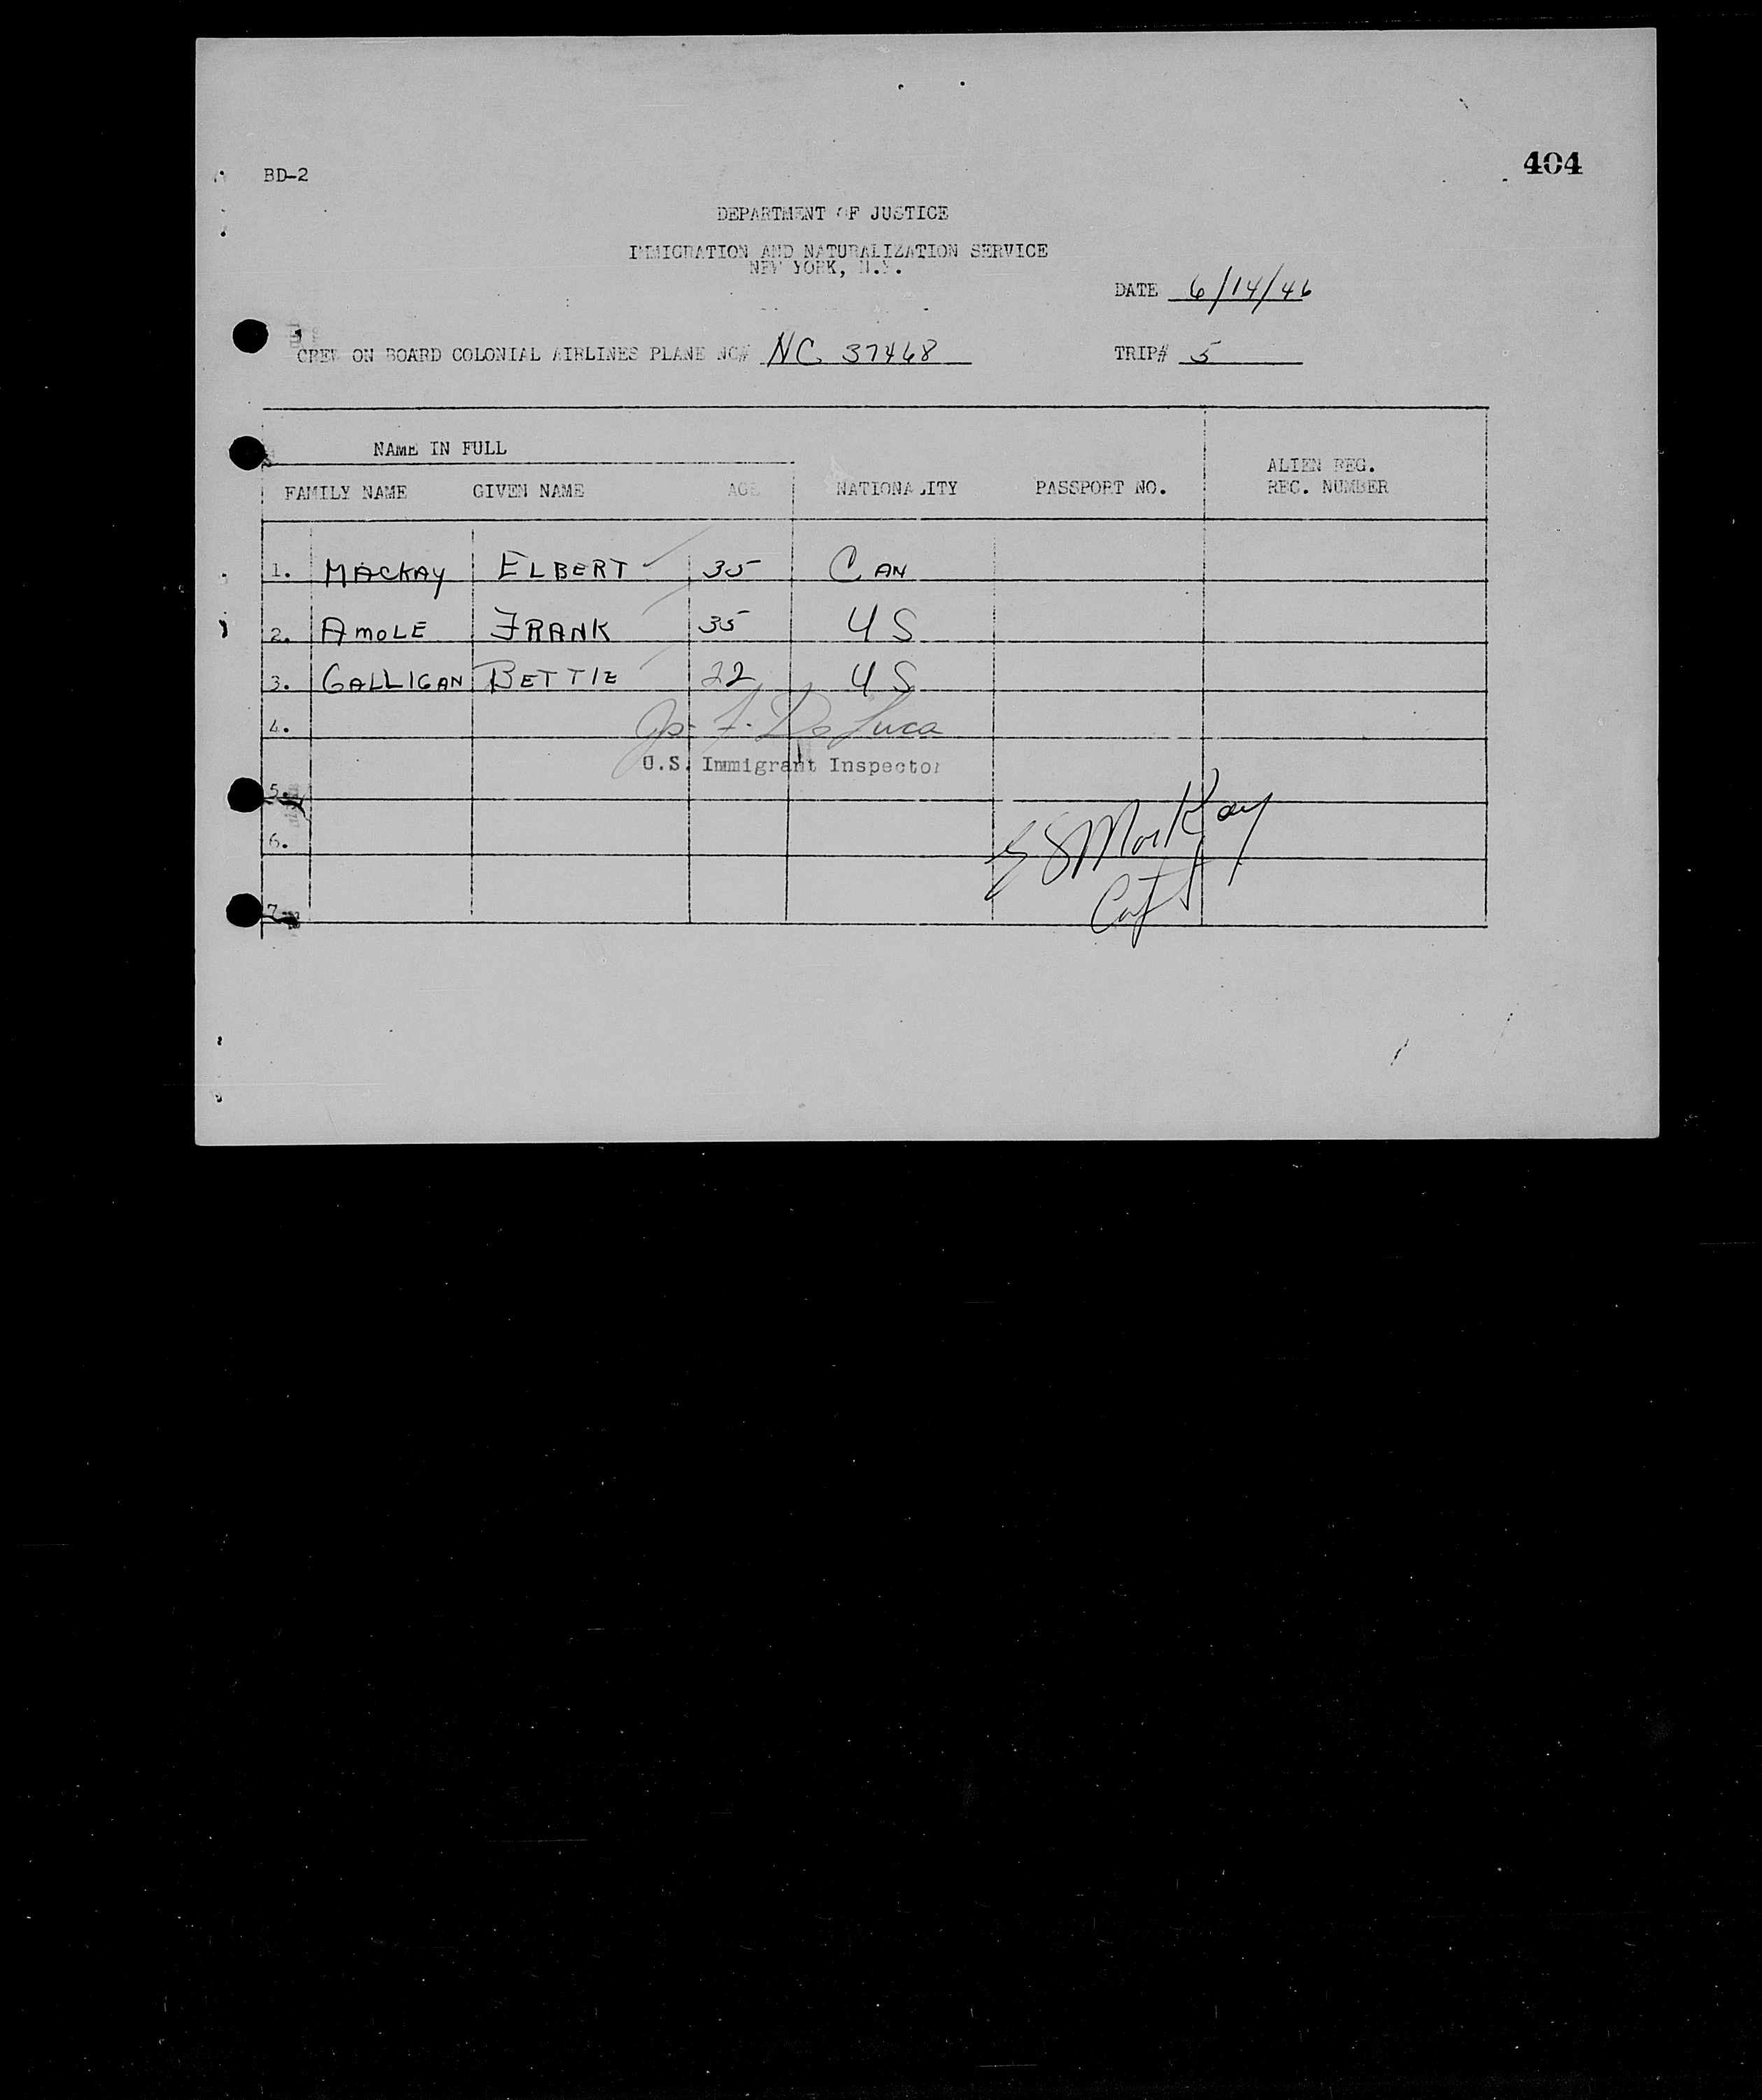 404
BD-2
DEPARTMENT OF JUSTICE
IMMIGRATION AND NATURALIZATION SERVICE
NEW YORK, N.Y.
DATE 6/14/46
CREW ON BOARD COLONIAL AIRLINES PLANE NO# NC 37468 TRIP# 5
NAME IN FULL
FAMILY NAME GIVEN NAME AGE NATIONALITY PASSPORT NO. ALIEN REG. REC. NUMBER
1. MACKAY ELBERT 35 CAN
2. AMOLE FRANK 35 US
3. GALLIGAN BETTIE 22 US
4.
Jos F. DeLuca
U.S. Immigrant Inspector
5.
6.
E S MacKay
Capt
7.